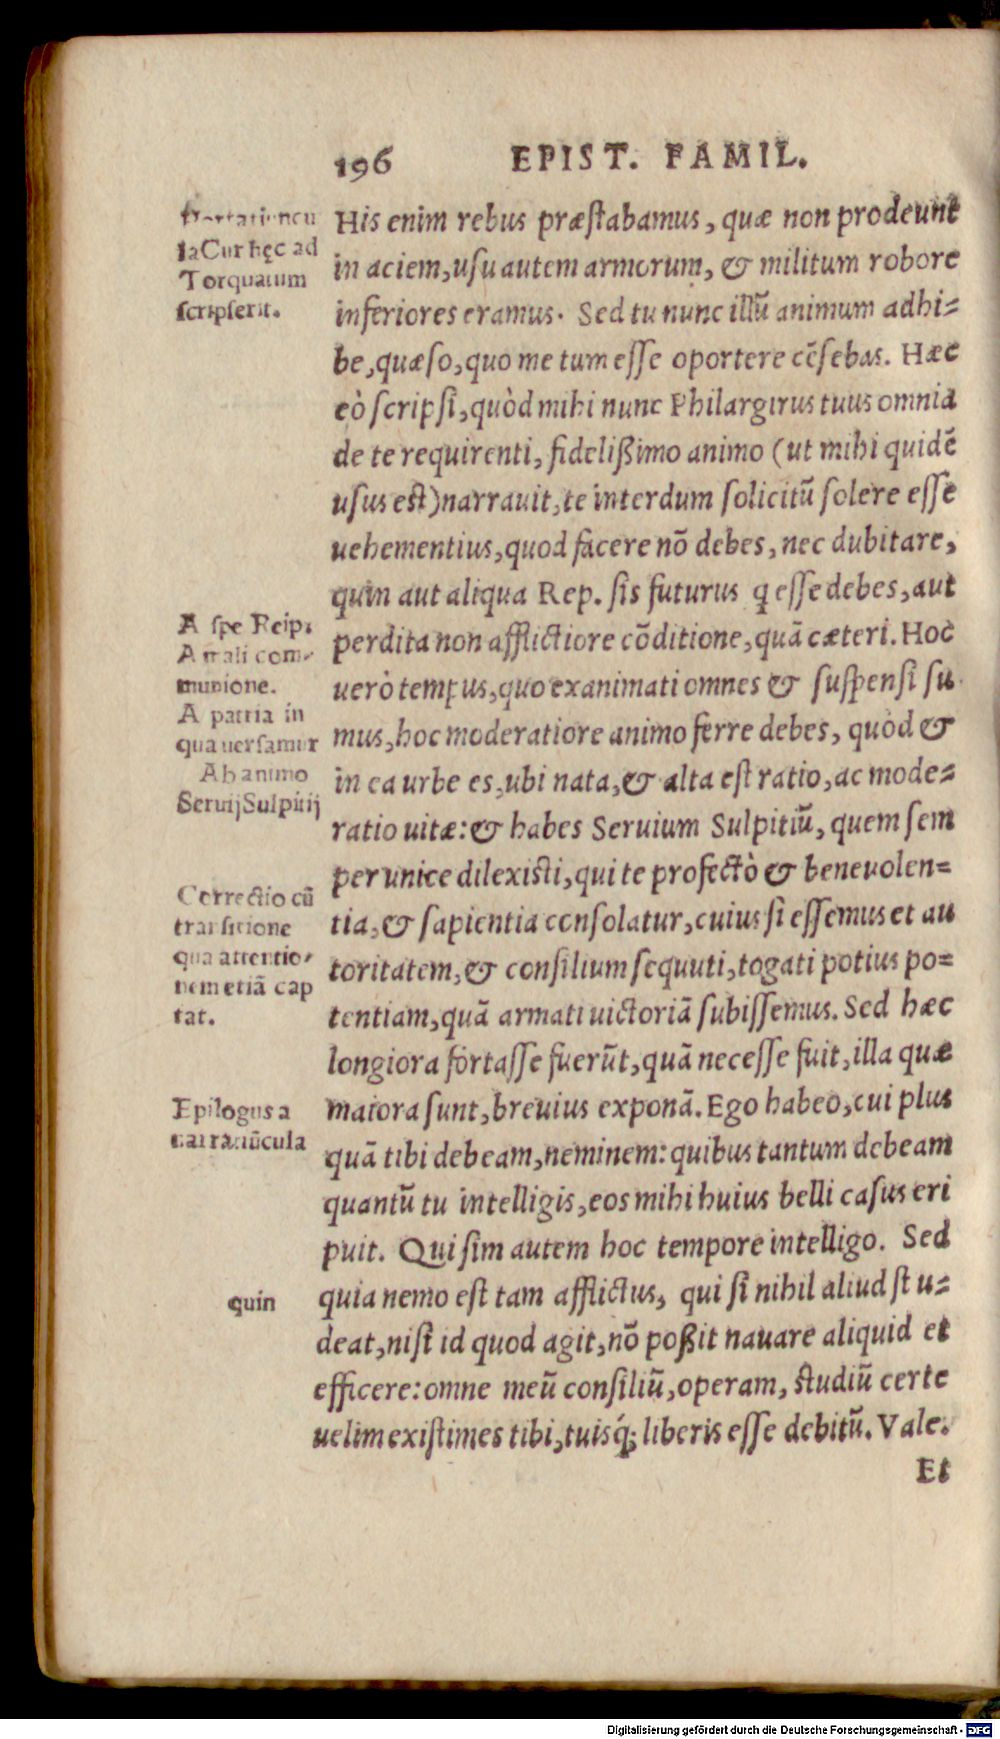 196 EPIST. FAMIL.
His enim rebus præstabamus, quæ non prodeunt
in aciem, usu autem armorum, & militum robore
inferiores eramus. Sed tu nunc illũ animum adhi=
be, quæso, quo me tum esse oportere cẽsebas. Hæc
eò scripsi, quòd mihi nunc Philargirus tuus omnia
de te requirenti, fidelißimo animo (ut mihi quidẽ
usus est) narrauit, te interdum solicitũ solere esse
uehementius, quod facere nõ debes, nec dubitare,
quin aut aliqua Rep. sis futurus q esse debes, aut
perdita non afflictiore cõditione, quã cæteri. Hoc
uerò tempus, quo exanimati omnes & suspensi su
mus, hoc moderatiore animo ferre debes, quòd &
in ea urbe es, ubi nata, & alta est ratio, ac mode=
ratio uitæ: & habes Seruium Sulpitiũ, quem sem
per unice dilexisti, qui te profectò & beneuolen=
tia, & sapientia consolatur, cuius si essemus et au
toritatem, & consilium sequuti, togati potius po=
tentiam, quã armati uictoriã subissemus. Sed hæc
longiora fortasse fuerũt, quã necesse fuit, illa quæ
maiora sunt, breuius exponã. Ego habeo, cui plus
quã tibi debeam, neminem: quibus tantum debeam
quantũ tu intelligis, eos mihi huius belli casus eri
puit. Qui sim autem hoc tempore intelligo. Sed
quia nemo est tam afflictus, qui si nihil aliud stu=
deat, nisi id quod agit, nõ poßit nauare aliquid et
efficere: omne meũ consiliũ, operam, studiũ certe
uelim existimes tibi, tuisq́; liberis esse debitũ. Vale.
Et
laCur hęc ad
Torquatum
scripserit.
A spe Reip.
A mali com-
munione.
A patria in
qua uersamur
Ab animo
Seruij Sulpitij
Correctio cũ
transitione
qua attentio-
nem etiã cap
tat.
Epilogus a
narratiũcula
quin
Digitalisierung gefördert durch die Deutsche Forschungsgemeinschaft - DFG